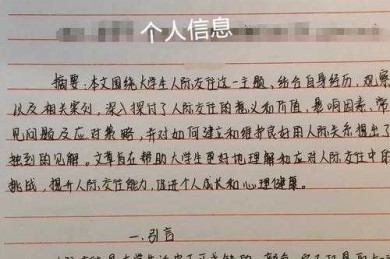 个人信息
摘要:本文围绕大学生人际交往这一主题,结合自身经历,观察
以及相关案例,深入探讨了人际交往的意义和价值,影响因素,常
见问题及应对策略,并对如何建立和维护良好的人际关系提出了
独到的见解。文章旨在帮助大学生更好地理解和应对人际交往中的
挑战,提升人际交往能力,促进个人成长和心理健康。
一.引言